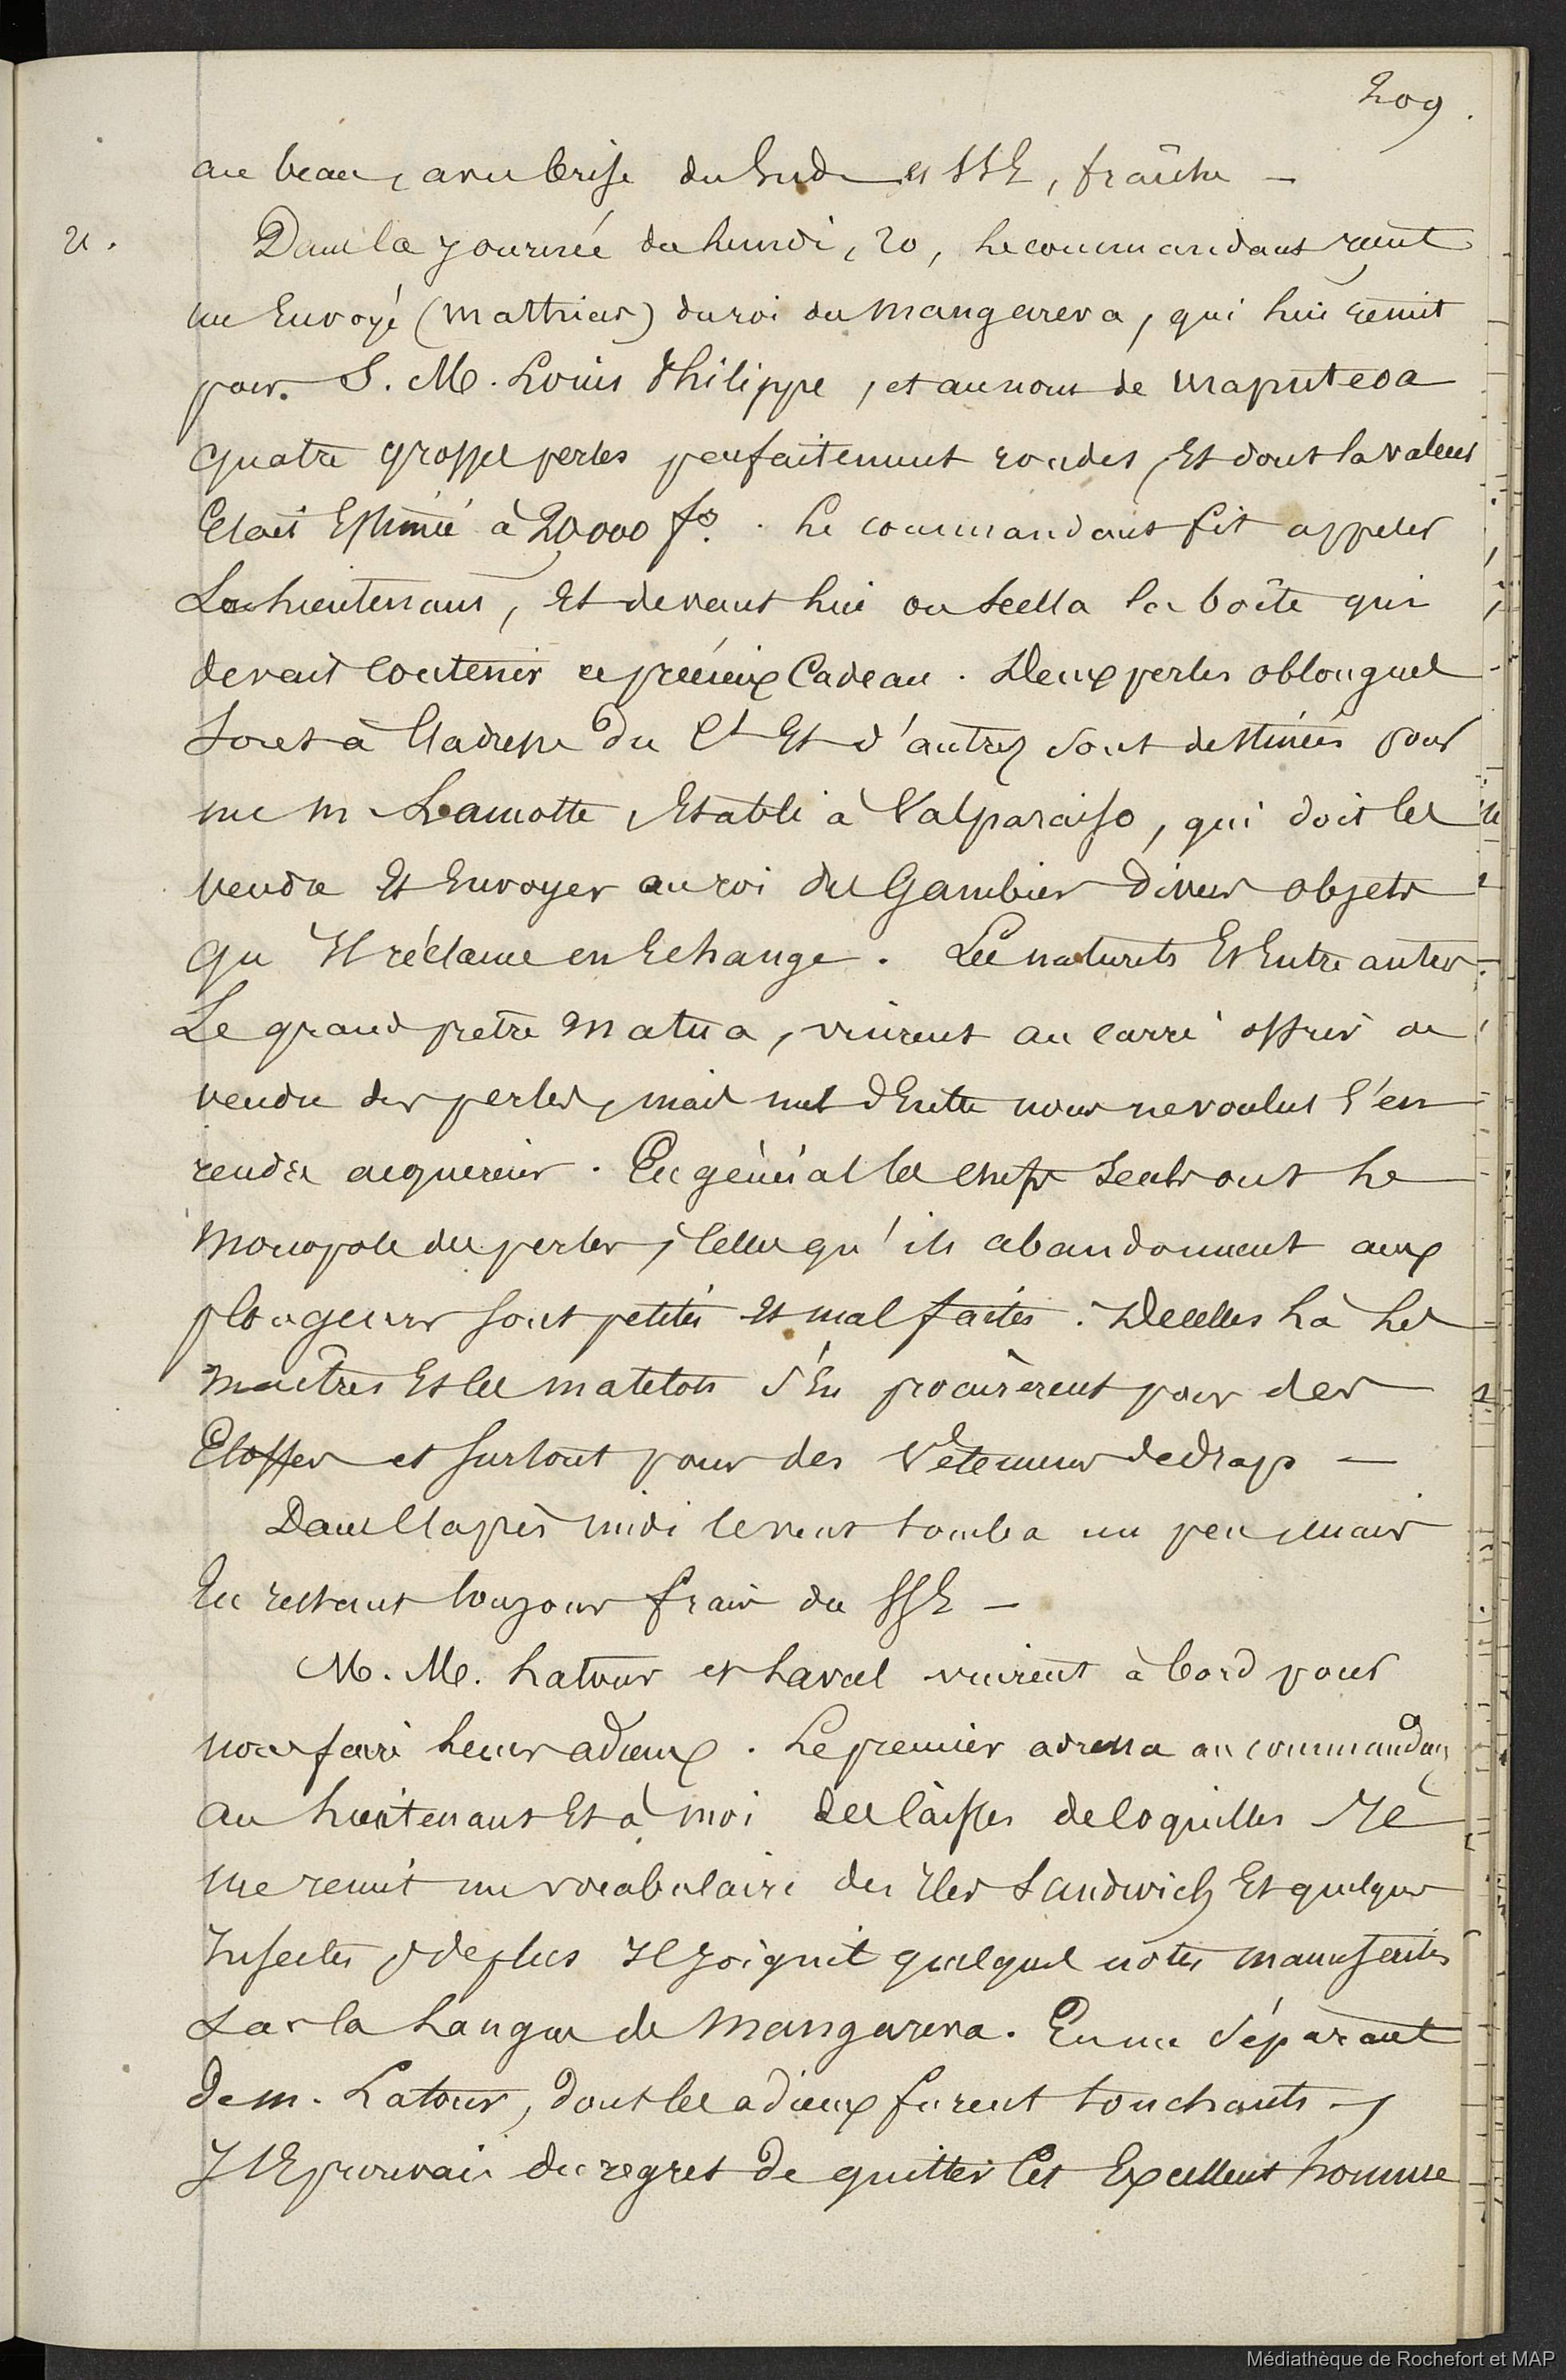 209.
au beau, avec brise du Sud et SSE, fraîche —
21.
Dans la journée du lundi, 20, le commandant reçut
un Envoyé (Matthias) du roi du Mangareva, qui lui remit
pour S. M. Louis Philippe, et au nom de Maputeoa
quatre grosses perles parfaitement rondes, Et dont la valeur
Etait Estimée à 20,000 fs. Le commandant fit appeler
Le lieutenant, Et devant lui on scella la boîte qui
devait contenir ce précieux Cadeau. Deux perles oblongues
Sont à l'adresse du Ct Et d'autres sont destinées pour
un M Lamotte, Etabli à Valparaiso, qui doit les
vendre Et Envoyer au roi des Gambier divers objets
qu'Il réclame en Echange. Les naturels Et Entre autres
Le grand prêtre Matua, vinrent au carré offrir de
vendre des perles, mais nul d'Entre nous ne voulut s'en
rendre acquéreur. En général les chefs seuls ont le
monopole des perles, Celles qu'ils abandonnent aux
plongeurs sont petites Et mal faites. De celles là les
maîtres Et les matelots s'En procurèrent pour des
Etoffes et surtout pour des Vêtemens de drap —
Dans l'après midi le vent tomba un peu, mais
En restant toujours frais du SSE —
M. M. Latour et Laval vinrent à bord pour
nous faire leurs adieux. Le premier adressa au commandant
au lieutenant Et à moi des caisses de coquilles Il
me remit un vocabulaire des Iles Sandwich Et quelques
Insectes, de plus Il joignit quelques notes manuscrites
Sur la langue de Mangareva. En me séparant
de M. Latour, dont les adieux furent touchants,
J'Eprouvais du regret de quitter Cet Excellent homme
Médiathèque de Rochefort et MAP